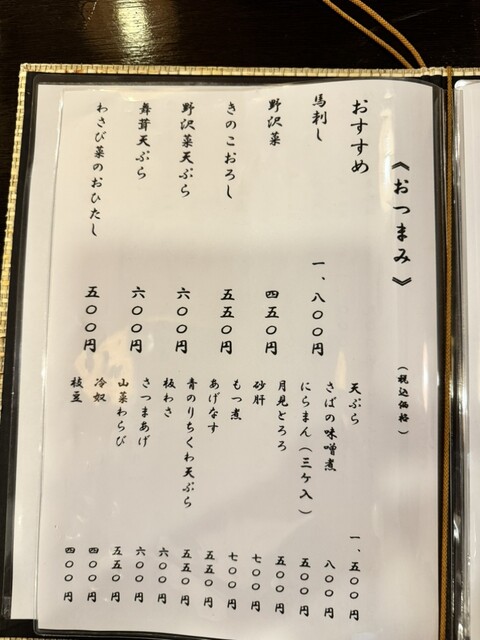 《おつまみ》
(税込価格)
おすすめ
馬刺し 一、八〇〇円
野沢菜 四五〇円
きのこおろし 五五〇円
野沢菜天ぷら 六〇〇円
舞茸天ぷら 六〇〇円
わさび菜のおひたし 五〇〇円
天ぷら 一、五〇〇円
さばの味噌煮 八〇〇円
にらまん(三ケ入) 五〇〇円
月見とろろ 五〇〇円
砂肝 七〇〇円
もつ煮 七〇〇円
あげなす 五五〇円
青のりちくわ天ぷら 五五〇円
板わさ 六〇〇円
さつまあげ 六〇〇円
山菜わらび 五五〇円
冷奴 四〇〇円
枝豆 四〇〇円